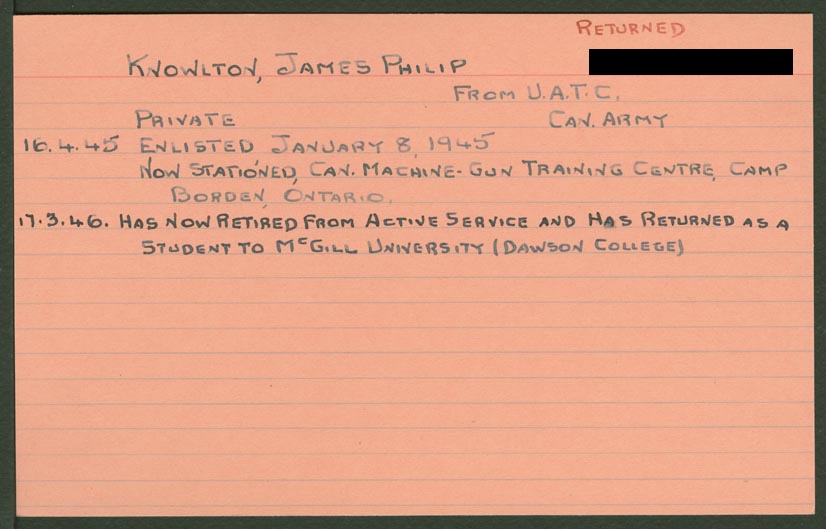 RETURNED
KNOWLTON, JAMES PHILIP
FROM U.A.T.C.
PRIVATE CAN. ARMY
16.4.45 ENLISTED JANUARY 8, 1945
NOW STATIONED, CAN. MACHINE-GUN TRAINING CENTRE, CAMP
BORDEN, ONTARIO.
17.3.46. HAS NOW RETIRED FROM ACTIVE SERVICE AND HAS RETURNED AS A
STUDENT TO McGILL UNIVERSITY (DAWSON COLLEGE)